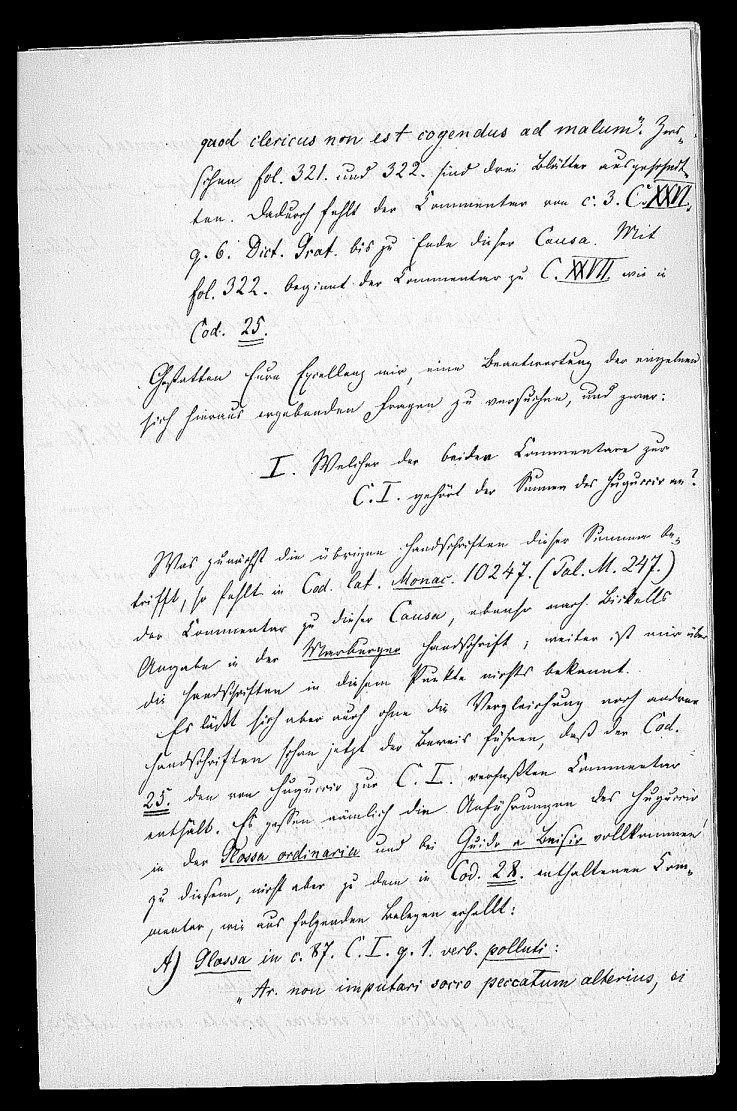 quod clericus non est cogendus ad malum". Zwi-
schen fol. 321. und 322. sind drei Blätter ausgeschnit-
ten. Dadurch fehlt der Commentar von c. 3. C. XXVI.
q. 6. Dict. Grat. bis zu Ende dieser Causa. Mit
fol. 322. beginnt der Commentar zu C. XXVII. wie in
Cod. 25.
Gestatten Eure Excellenz mir, eine Beantwortung der einzelnen
sich hieraus ergebenden Fragen zu versuchen, und zwar:
I. Welcher der beiden Commentare zur
C. I. gehört der Summa des Huguccio an?
Was zunächst die übrigen Handschriften dieser Summa be-
trifft, so fehlt in Cod. lat. Monac. 10247. (Pal. M. 247.)
der Commentar zu dieser Causa, ebenso nach Bickells
Angabe in der Marburger Handschrift; weiter ist mir über
die Handschriften in diesem Punkte nichts bekannt.
Es läßt sich aber auch ohne die Vergleichung noch andrer
Handschriften schon jetzt der Beweis führen, daß der Cod.
25. den von Huguccio zur C. I. verfaßten Commentar
enthält. Es passen nämlich die Anführungen des Huguccio
in der Glossa ordinaria und bei Guido a Baisio vollkommen
zu diesem, nicht aber zu dem in Cod. 28. enthaltenen Com-
mentar, wie aus folgenden Belegen erhellt:
A) Glossa in c. 87. C. I. q. 1. verb. polluti:
"Ar. non imputari socro peccatum alterius, ei